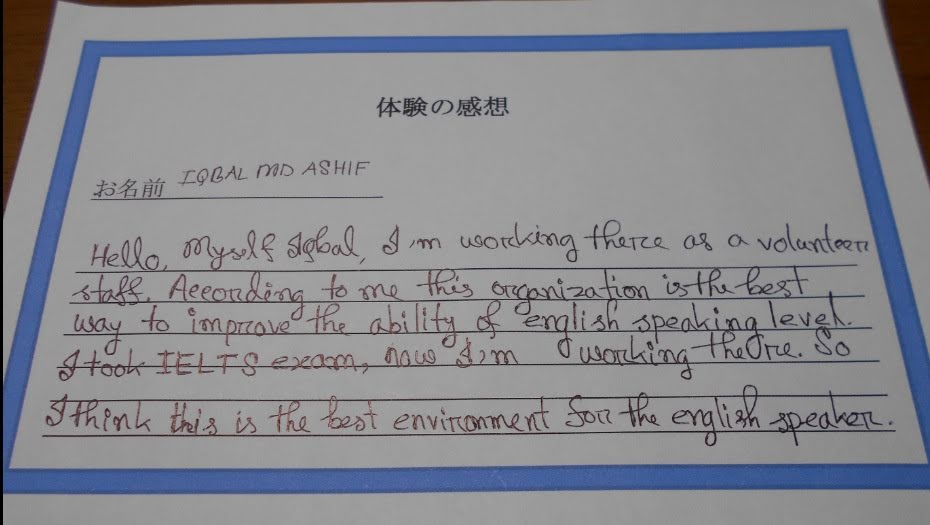 体験の感想
お名前 IQBAL MD ASHIF
Hello, Myself Iqbal, I'm working there as a volunteer
staff. According to me this organization is the best
way to improve the ability of english speaking level.
I took IELTS exam, now I'm working there. So
I think this is the best environment for the english speaker.